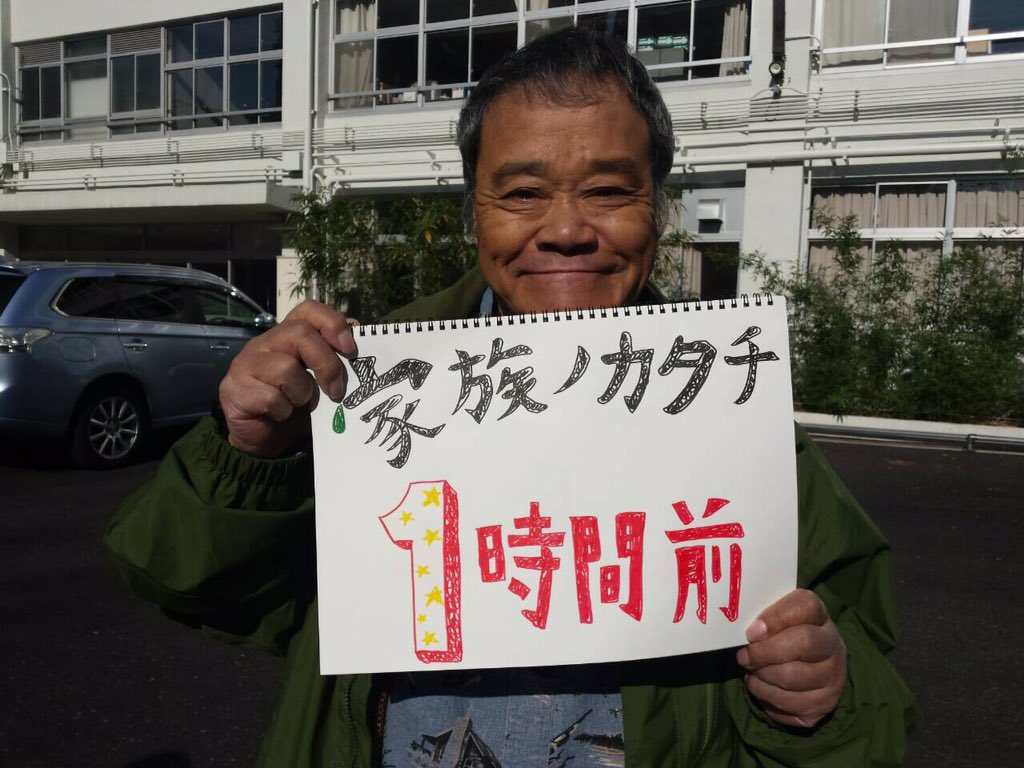 家族ノカタチ
1時間前